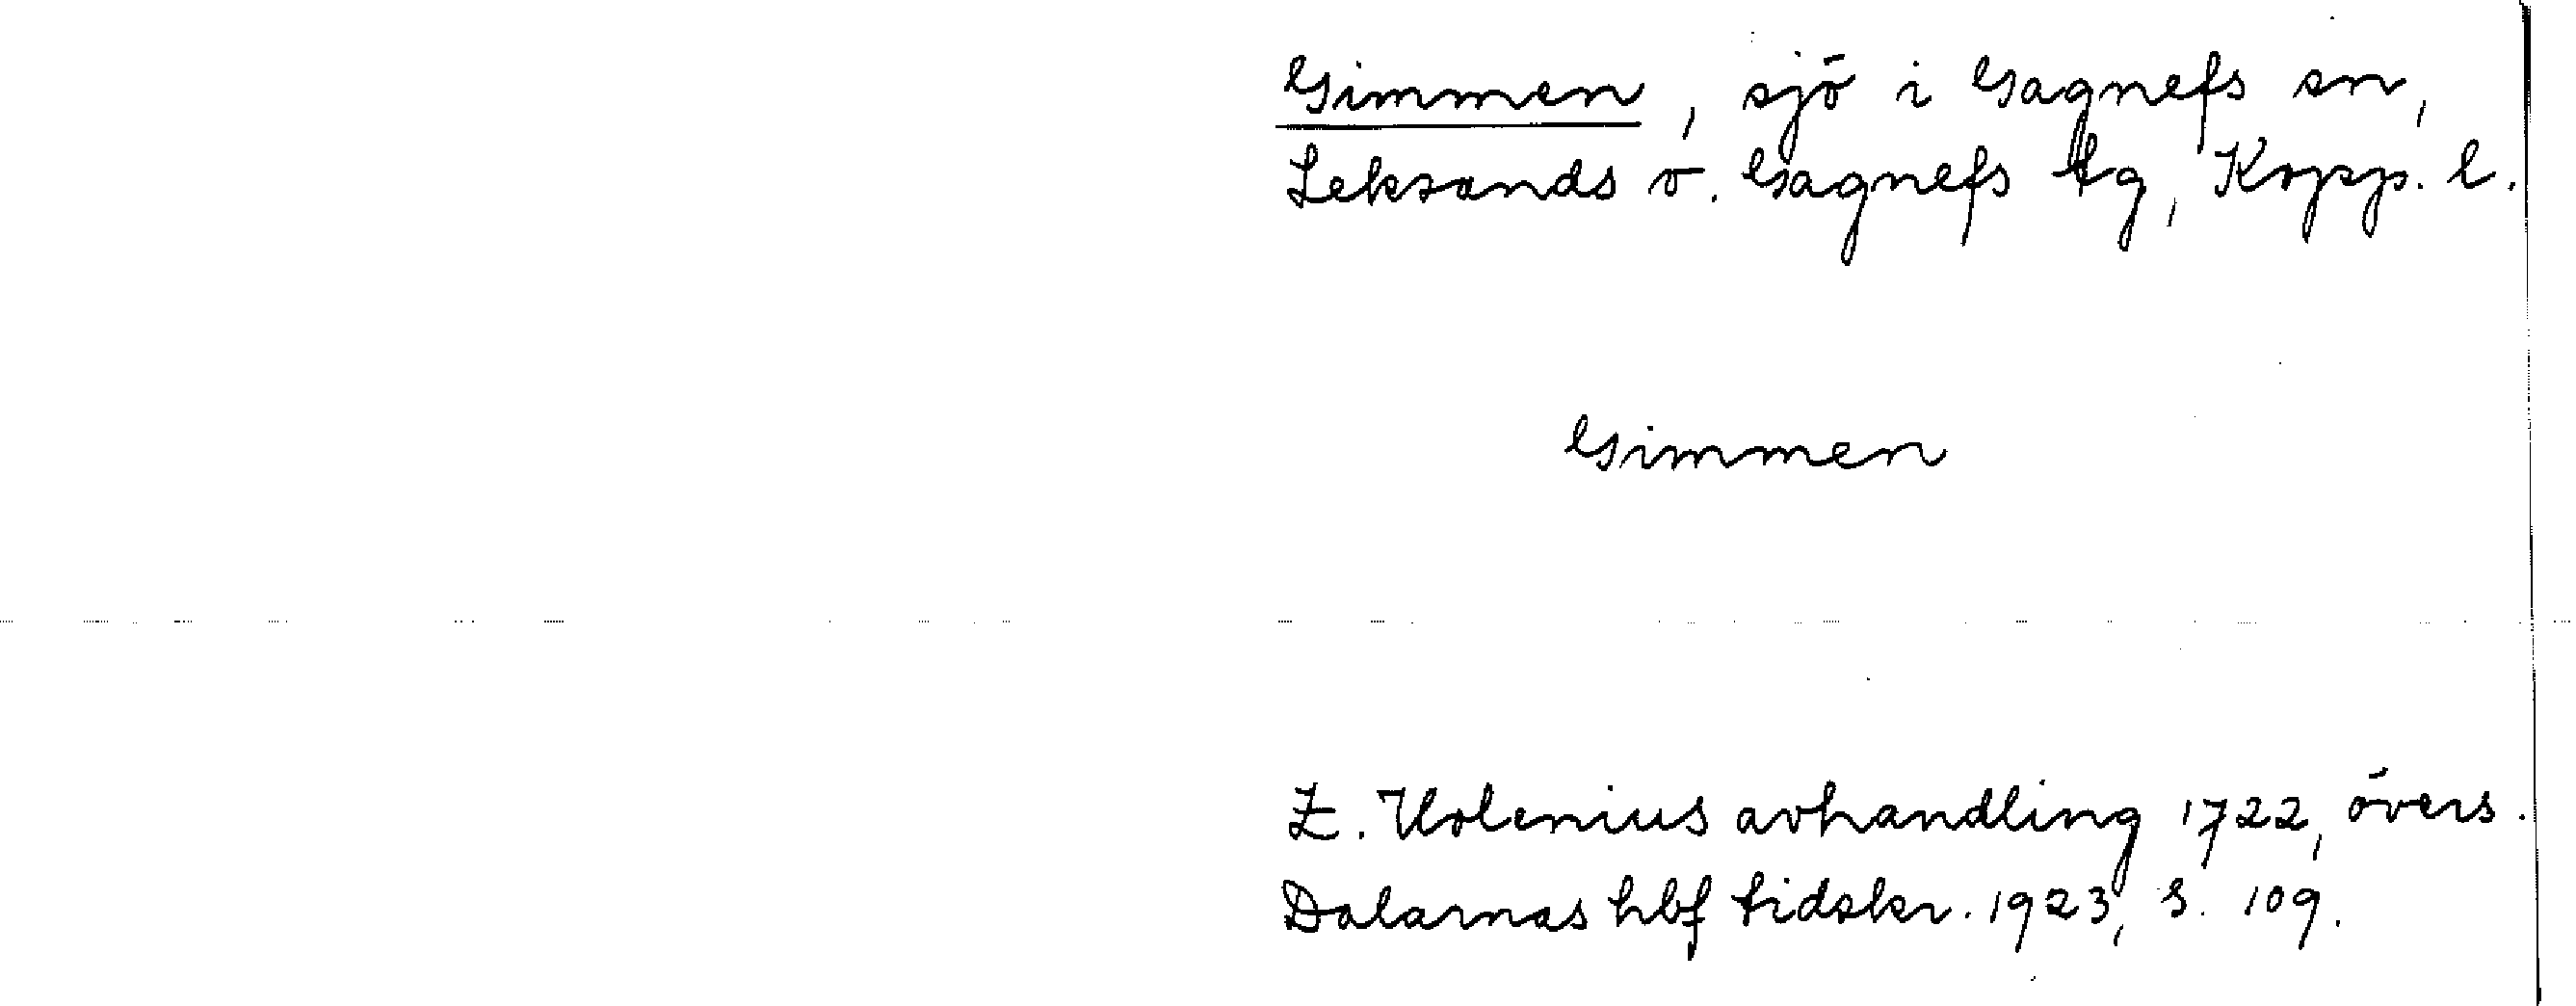 Gimmen, sjö i Gagnefs sn,
Leksands o. Gagnefs tg, Kopp. l.
Gimmen
Z. Holenius avhandling 1722, övers.
Dalarnas hbf tidskr. 1923, s. 109.